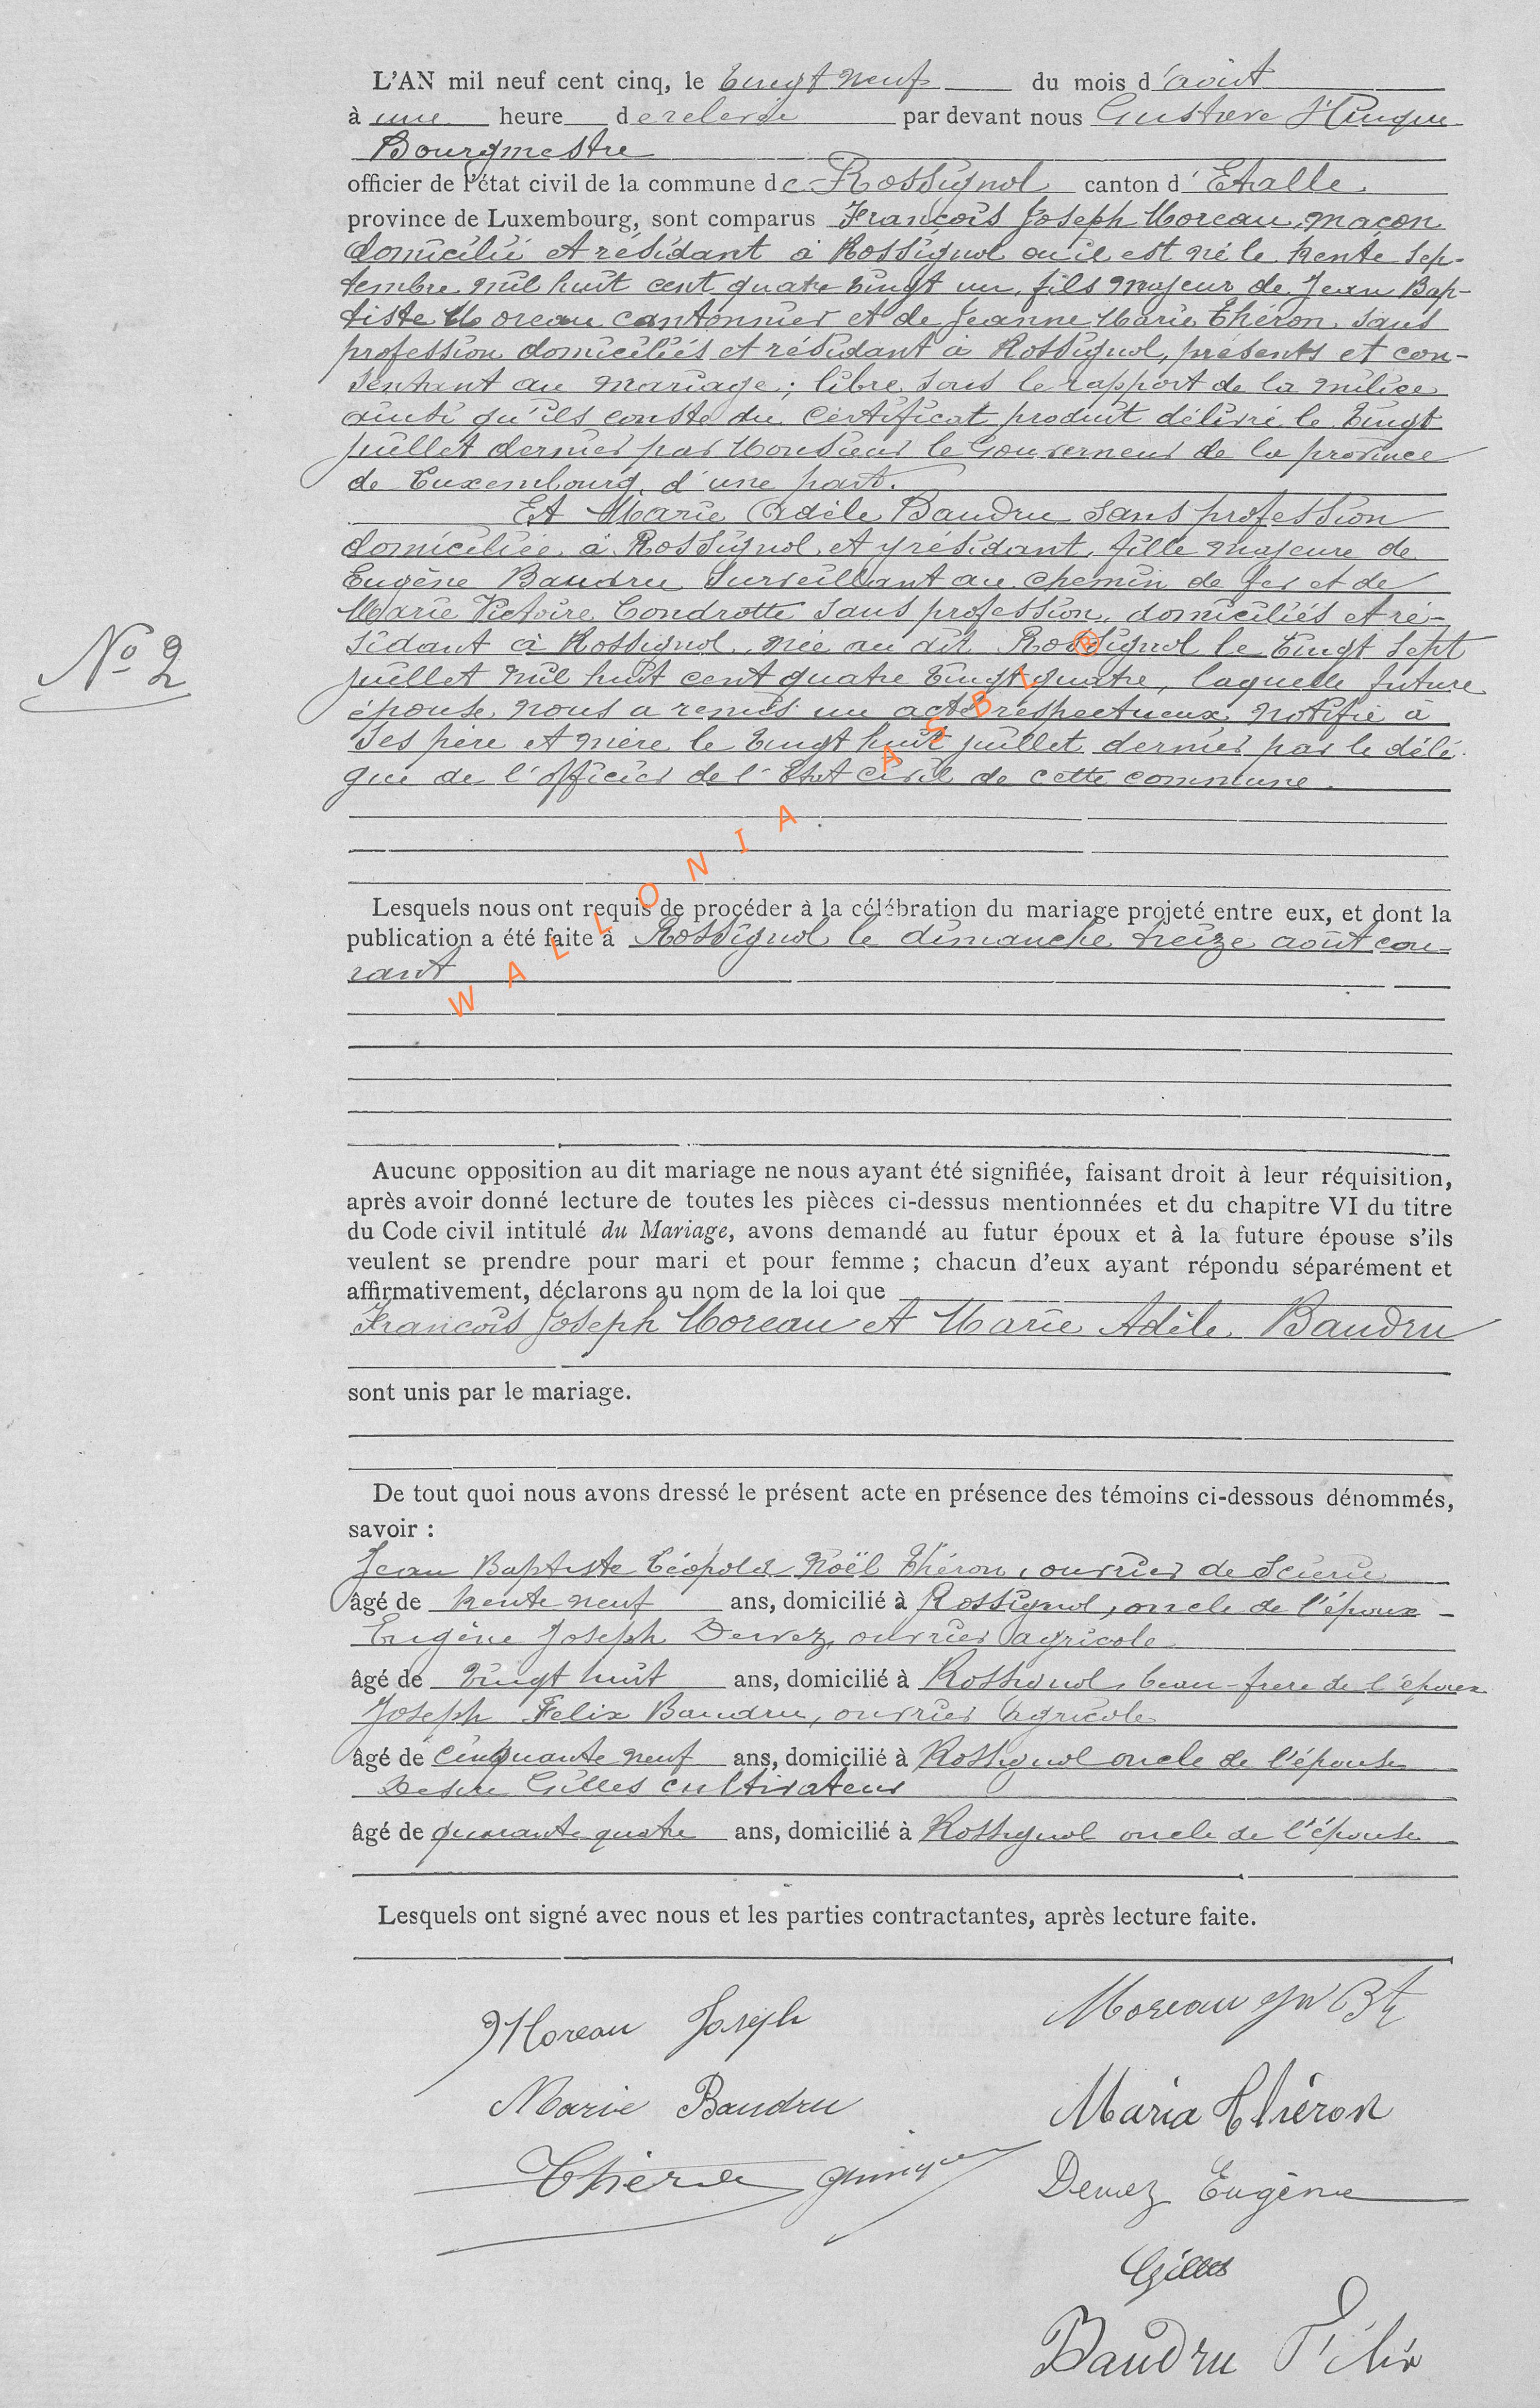 L'AN mil neuf cent cinq, le vingt neuf du mois d'août
à une heure de relevée par devant nous Gustave Hurique
Bourgmestre
officier de l'état civil de la commune de Rossignol canton d'Etalle
province de Luxembourg, sont comparus François Joseph Moreau, maçon
domicilié et résidant à Rossignol où il est né le trente sep-
tembre mil huit cent quatre vingt un, fils majeur de Jean Bap-
tiste Moreau cantonnier et de Jeanne Marie Théron, sans
profession domiciliés et résidant à Rossignol, présents et con-
sentant au mariage; libre sous le rapport de la milice
ainsi qu'ils conste du certificat produit délivré le vingt
juillet dernier par Monsieur le Gouverneur de la province
de Luxembourg, d'une part.
Et Marie Adèle Baudru sans profession
domiciliée à Rossignol et y résidant, fille majeure de
Eugène Baudru surveillant au chemin de fer et de
Marie Victoire Condrotte sans profession, domiciliés et ré-
sidant à Rossignol, née au dit Rossignol le vingt sept
N° 2
juillet mil huit cent quatre vingt quatre, laquelle future
épouse nous a remis un acte respectueux notifié à
ses père et mère le vingt huit juillet dernier par le délé-
gué de l'officier de l'Etat civil de cette commune.
WALLONIA ASBL ®
Lesquels nous ont requis de procéder à la célébration du mariage projeté entre eux, et dont la
publication a été faite à Rossignol le dimanche treize août cou-
rant
Aucune opposition au dit mariage ne nous ayant été signifiée, faisant droit à leur réquisition,
après avoir donné lecture de toutes les pièces ci-dessus mentionnées et du chapitre VI du titre
du Code civil intitulé du Mariage, avons demandé au futur époux et à la future épouse s'ils
veulent se prendre pour mari et pour femme ; chacun d'eux ayant répondu séparément et
affirmativement, déclarons au nom de la loi que
François Joseph Moreau et Marie Adèle Baudru
sont unis par le mariage.
De tout quoi nous avons dressé le présent acte en présence des témoins ci-dessous dénommés,
savoir :
Jean Baptiste Léopold Noël Théron, ouvrier de scierie
âgé de trente neuf ans, domicilié à Rossignol, oncle de l'époux -
Eugène Joseph Dervez, ouvrier agricole
âgé de vingt huit ans, domicilié à Rossignol, beau-frere de l'époux
Joseph Felix Baudru, ouvrier agricole
âgé de cinquante neuf ans, domicilié à Rossignol oncle de l'épouse
Desire Gilles cultivateur
âgé de quarante quatre ans, domicilié à Rossignol oncle de l'épouse
Lesquels ont signé avec nous et les parties contractantes, après lecture faite.
Moreau Joseph
Moreau Jn Bte
Marie Baudru
Maria Théron
Dervez Eugène
Gilles
Baudru Félix